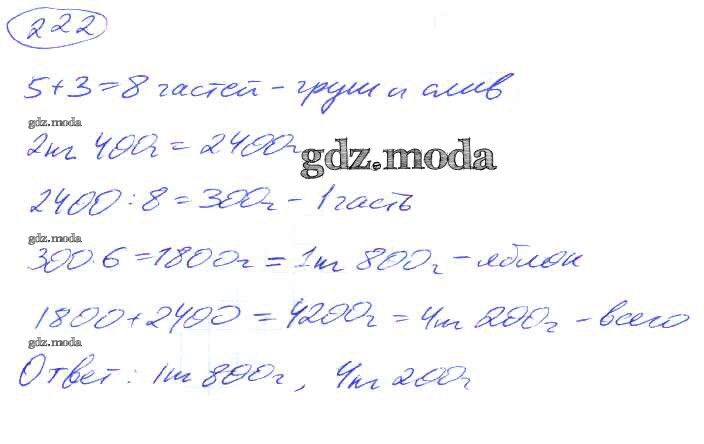 222
5+3=8 частей - груш и слив
gdz.moda
2кг 400г = 2400г
gdz.moda
2400 : 8 = 300г - 1 часть
gdz.moda
300·6 = 1800г = 1кг 800г - яблок
1800+2400 = 4200г = 4кг 200г - всего
gdz.moda
Ответ: 1кг 800г, 4кг 200г